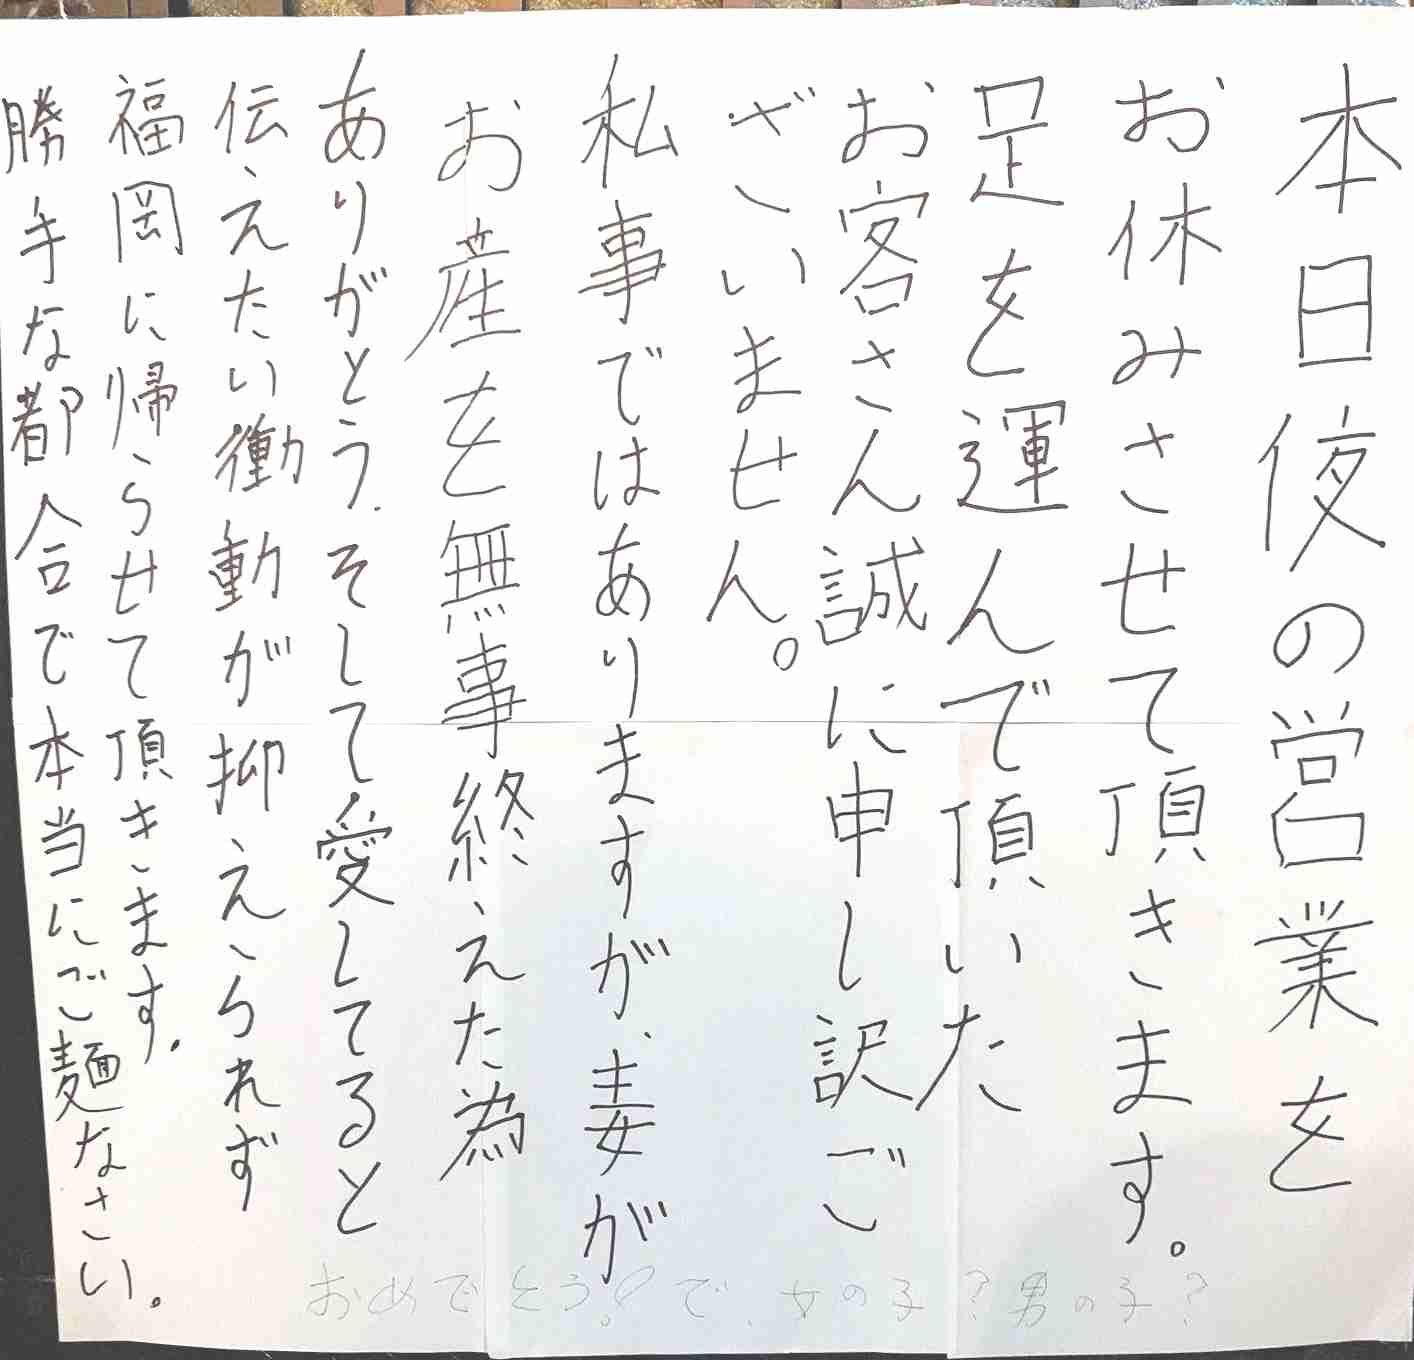 本日夜の営業を
お休みさせて頂きます。
足を運んで頂いた
お客さん誠に申し訳ご
ざいません。
私事ではありますが、妻が
お産を無事終えた為
ありがとう、そして愛してると
伝えたい衝動が抑えられず
福岡に帰らせて頂きます。
勝手な都合で本当にご麺なさい。
おめでとう!で、女の子?男の子?